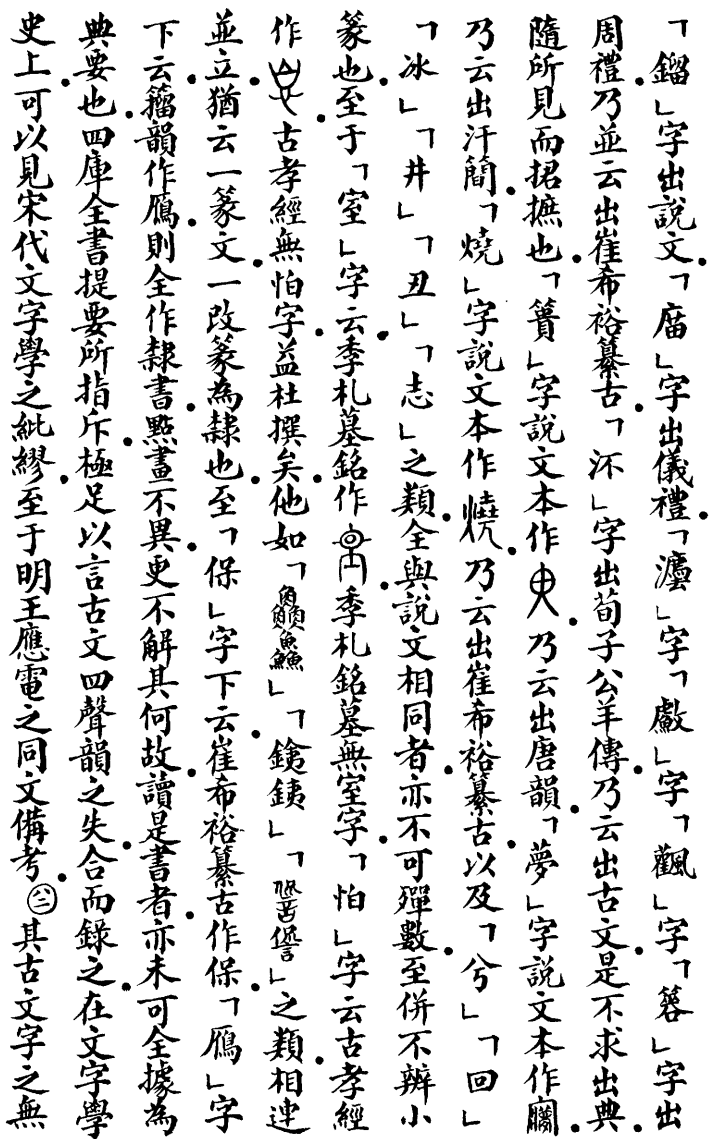 「鎦」字出說文。「庿」字出儀禮。「灋」字「䱷」字「飌」字「簭」字出
周禮。乃並云出崔希裕纂古。「沠」字出荀子公羊傳。乃云出古文。是不求出典。
隨所見而捃摭也。「簣」字說文本作。乃云出唐韻。「夢」字說文本作。
乃云出汗簡。「燒」字說文本作燒。乃云出崔希裕纂古。以及「兮」「回」
「冰」「井」「丑」「志」之類。全與說文相同者。亦不可殫數。至併不辨小
篆也。至于「室」字云。季札墓銘作季札銘墓無室字。「怕」字云古孝經
作。古孝經無怕字。益杜撰矣。他如「」「銕銕」「」之類。相連
並立。猶云一篆文。一改篆為隸也。至「保」字下云。崔希裕纂古作保。「鴈」字
下云。籀韻作鴈。則全作隸書。點畫不異。更不解其何故。讀是書者。亦未可全據為
典要也。四庫全書提要所指斥。極足以言古文四聲韻之失。合而錄之。在文字學
史上。可以見宋代文字學之紕繆。至于明王應電之同文備考。㈧㈡其古文字之無